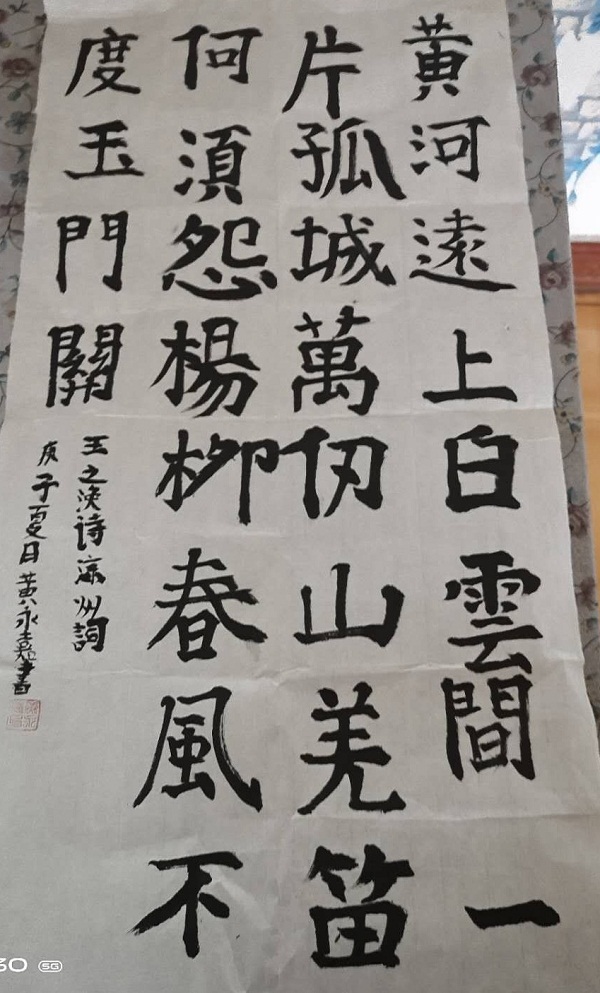 黄河遠上白雲間一
片孤城萬仞山羌笛
何須怨楊柳春風不
度玉門關
王之渙詩涼州詞
庚子夏日黄永嘉書
30 5G